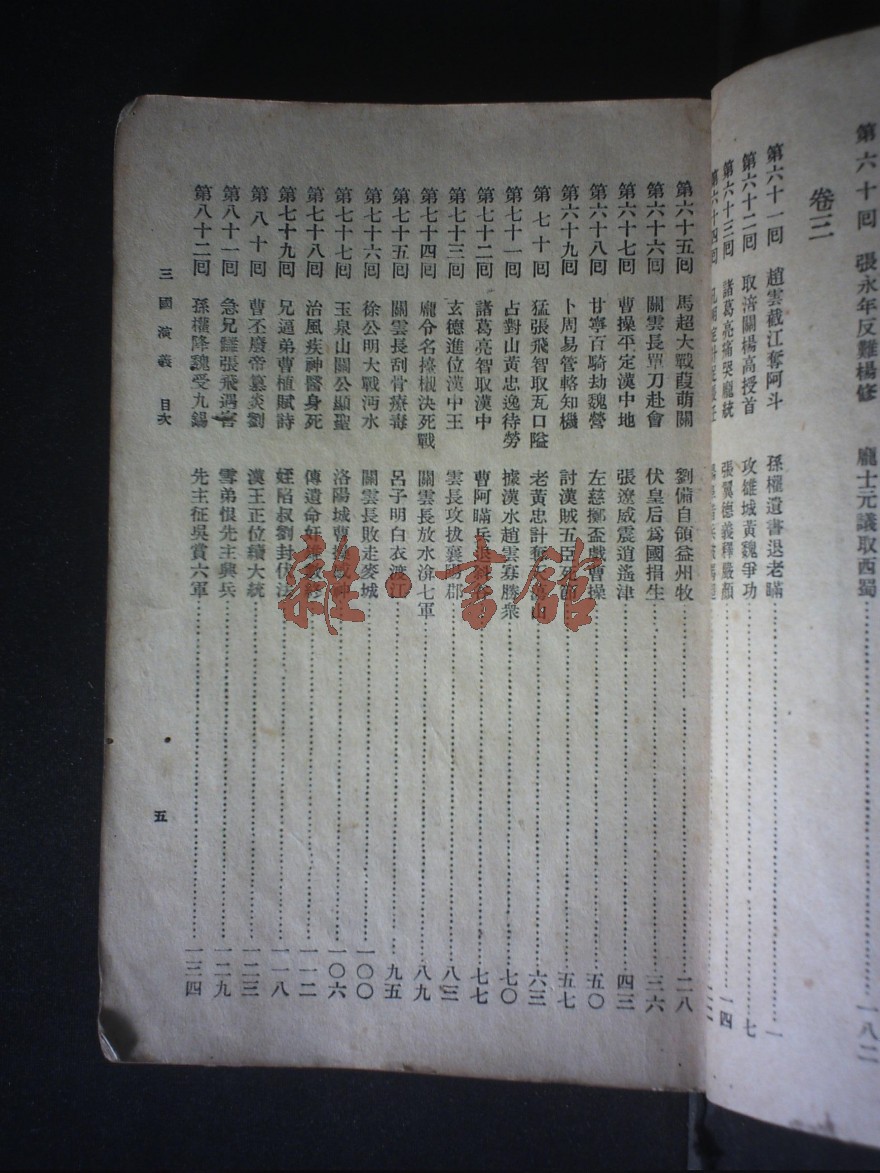 第六十回 張永年反難楊修 龐士元議取西蜀 一八二
卷三
第六十一回 趙雲截江奪阿斗 孫權遺書退老瞞 一
第六十二回 取涪關楊高授首 攻雒城黃魏爭功 七
第六十三回 諸葛亮痛哭龐統 張翼德義釋嚴顏 一四
第六十四回
第六十五回 馬超大戰葭萌關 劉備自領益州牧 二八
第六十六回 關雲長單刀赴會 伏皇后爲國捐生 三六
第六十七回 曹操平定漢中地 張遼威震逍遙津 四三
第六十八回 甘寧百騎劫魏營 左慈擲盃戲曹操 五〇
第六十九回 卜周易管輅知機 討漢賊五臣死節 五七
第七十回 猛張飛智取瓦口隘 老黃忠計奪天蕩山 六三
第七十一回 占對山黃忠逸待勞 據漢水趙雲寡勝衆 七〇
第七十二回 諸葛亮智取漢中 曹阿瞞兵退斜谷 七七
第七十三回 玄德進位漢中王 雲長攻拔襄陽郡 八三
第七十四回 龐令名擡櫬決死戰 關雲長放水渰七軍 八九
第七十五回 關雲長刮骨療毒 呂子明白衣渡江 九五
第七十六回 徐公明大戰沔水 關雲長敗走麥城 一〇〇
第七十七回 玉泉山關公顯聖 洛陽城曹操感神 一〇六
第七十八回 治風疾神醫身死 傳遺命奸雄數終 一一二
第七十九回 兄逼弟曹植賦詩 姪陷叔劉封伏法 一一八
第八十回 曹丕廢帝篡炎劉 漢王正位續大統 一二三
第八十一回 急兄讎張飛遇害 雪弟恨先主興兵 一二九
第八十二回 孫權降魏受九錫 先主征吳賞六軍 一三四
三國演義 目次
五
雜·書館